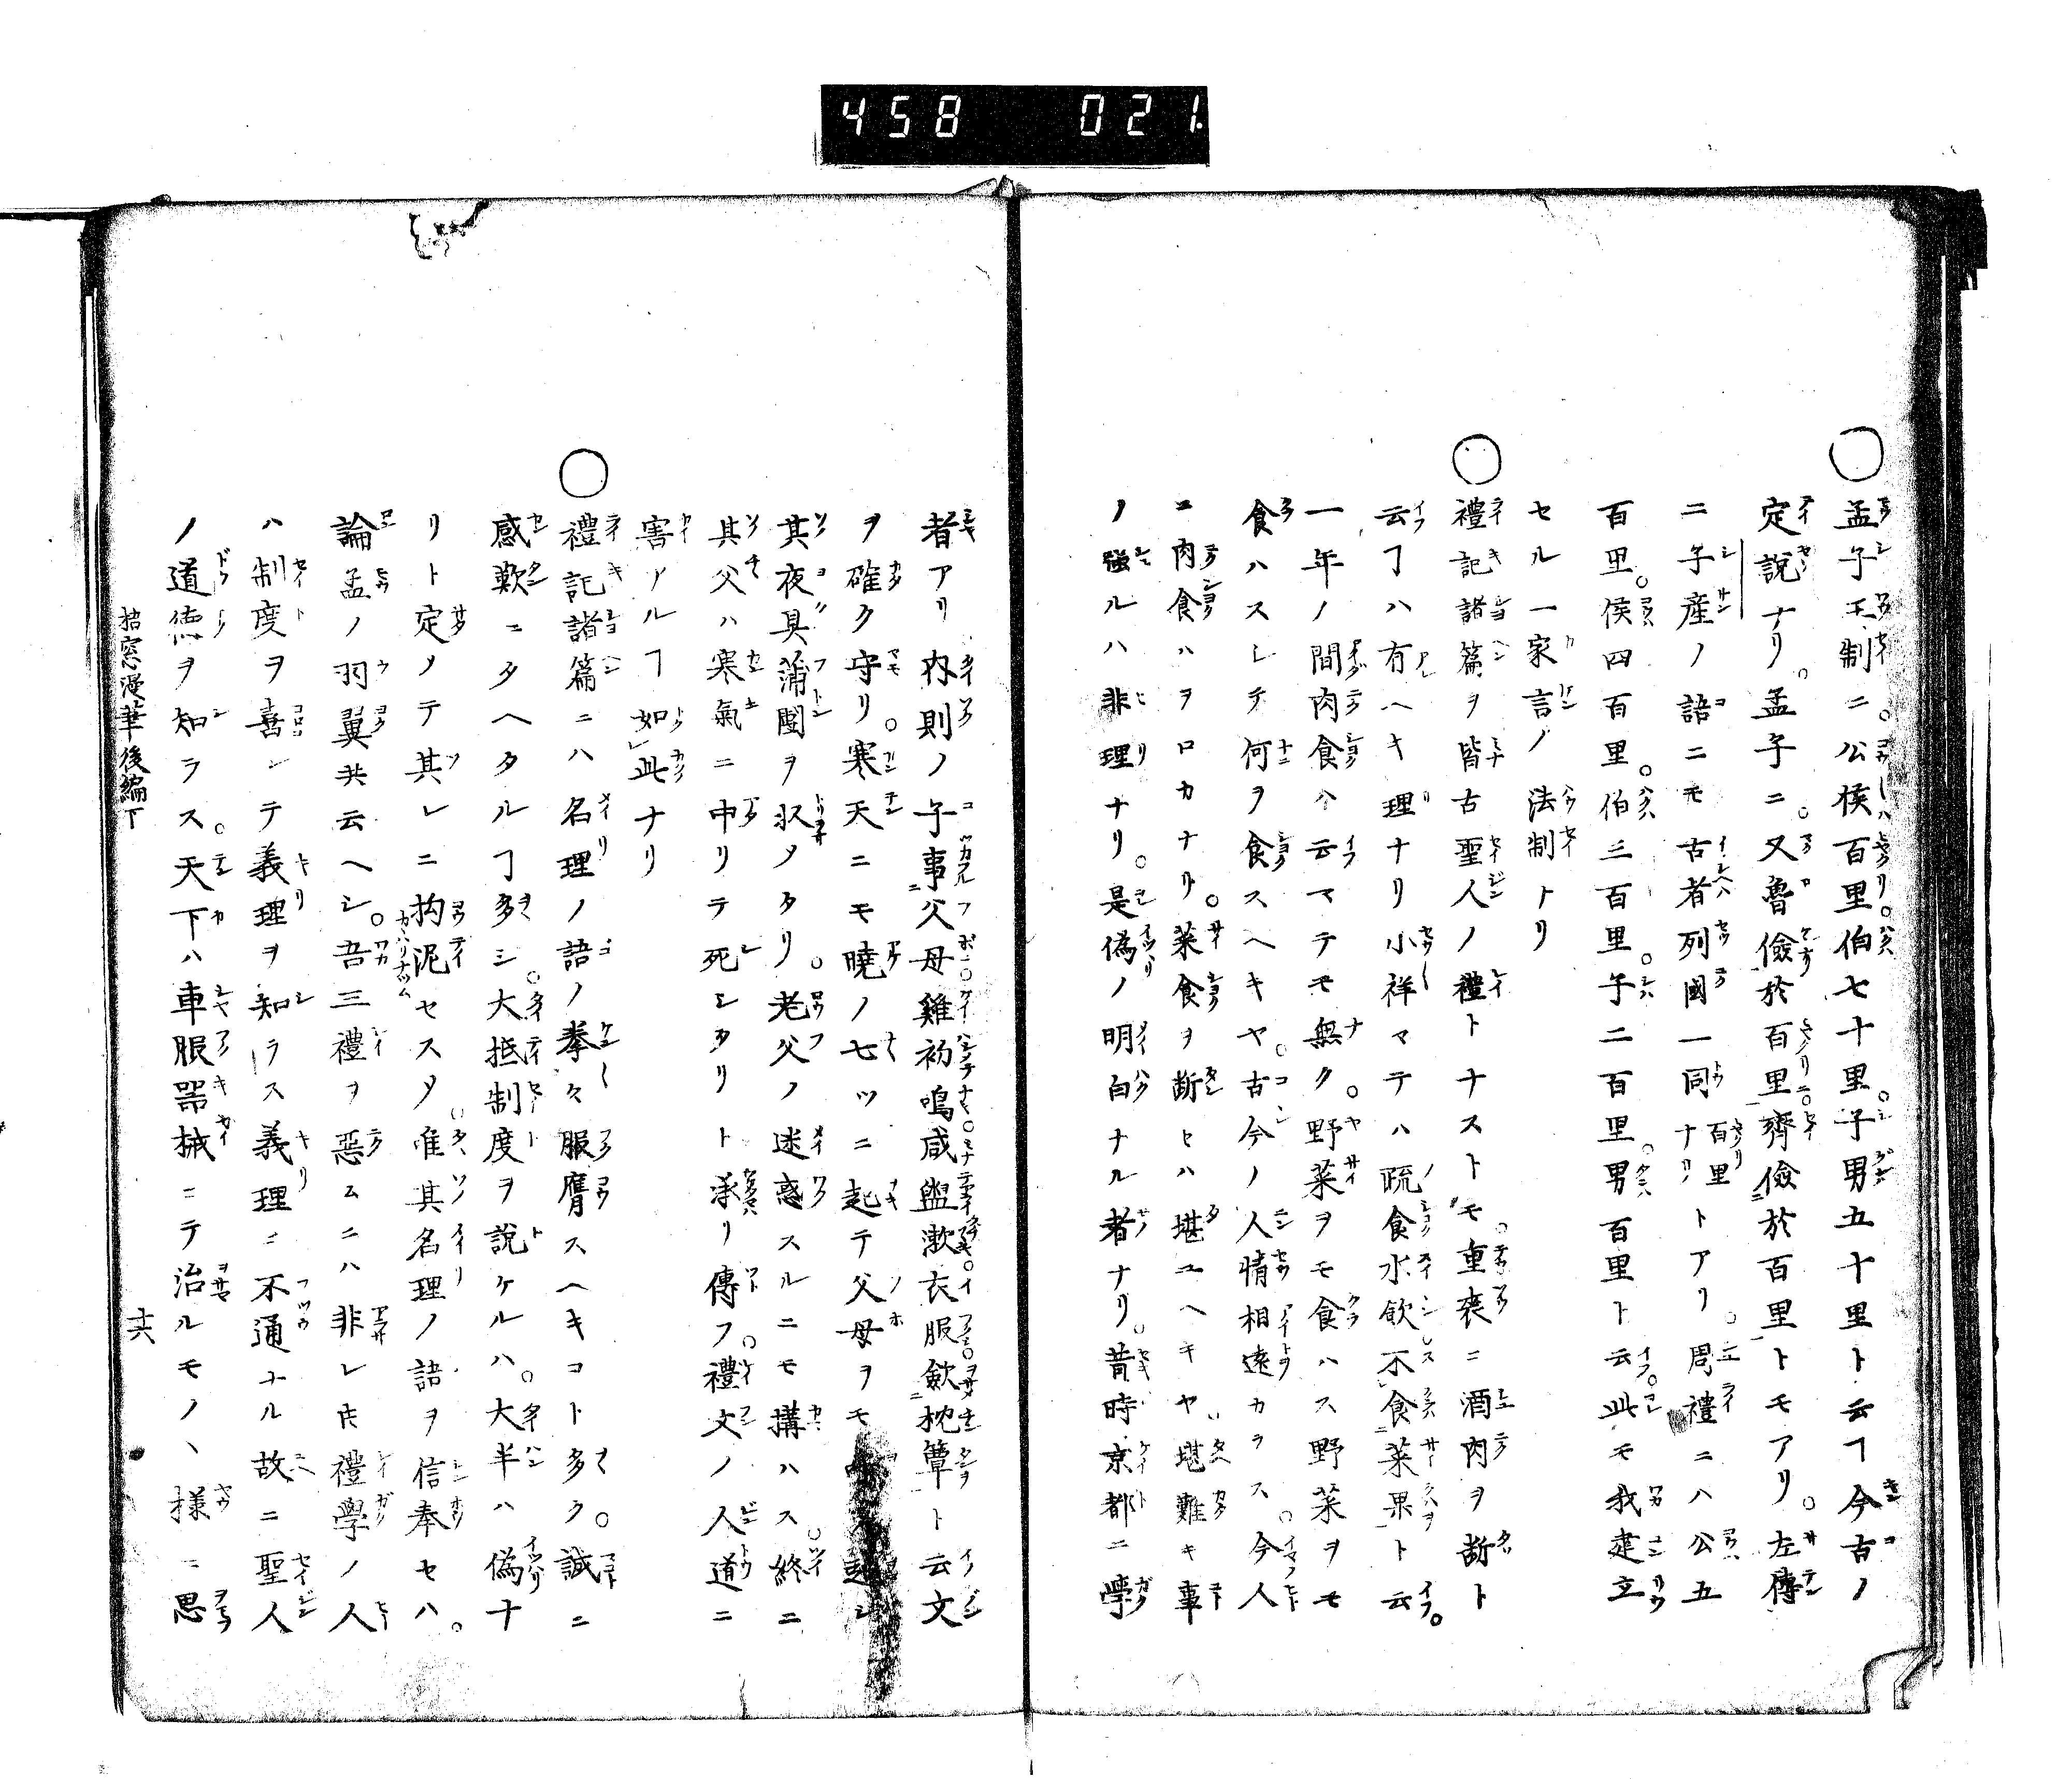 458 021
○孟子王制ニ。公侯百里。伯七十里。子男五十里ト云ヿ今古ノ
定說ナリ。孟子ニ。又魯儉於百里齊儉於百里トモアリ。左傳
ニ子產ノ語ニモ古者列國一同百里ナリトアリ。周禮ニハ公五
百里。侯四百里。伯三百里。子二百里。男百里ト云。此モ我建立
セル一家言ノ法制トリ
○禮記諸篇ヲ皆古聖人ノ禮トナストモ。重喪ニ酒肉ヲ斷ト
云ヿハ有ヘキ理ナリ小祥マテハ疏食水飲不食菜果ト云。
一年ノ間肉食ハ云マテモ無ク。野菜ヲモ食ハス野菜ヲモ
食ハスレテ何ヲ食スヘキヤ。古今ノ人情相遠カラス。今人
ニ肉食ハヲロカナリ。菜食ヲ斷セハ堪ユヘキヤ。堪難キ事
ノ強ルハ非理ナリ。是偽ノ明白ナル者ナリ。昔時京都ニ學
者アリ内則ノ子事父母雞初鳴咸盥漱衣服斂枕簟ト云文
ヲ確ク守リ。寒天ニモ曉ノ七ツニ起テ父母ヲモ
其夜具蒲團ヲ收メタリ。老父ノ迷惑スルニモ搆ハス。終ニ
其父ハ寒氣ニ中リテ死シタリト承リ傳フ。禮文ノ人道ニ
害アルヿ如此ナリ
○禮記諸篇ニハ名理ノ語ノ拳々服膺スヘキコト多ク。誠ニ
感歎ニタヘタルヿ多シ。大抵制度ヲ說ケルハ。大半ハ偽ナ
リト定メテ其レニ拘泥セスタ。唯其名理ノ語ヲ信奉セハ。
論孟ノ羽翼共云ヘシ。吾三禮ヲ惡ムニハ非レ𪜈禮學ノ人
ハ制度ヲ喜シテ義理ヲ知ラス義理ニ不通ナル故ニ聖人
ノ道德ヲ知ラス。天下ハ車服器械ニテ治ルモノヽ樣ニ思
窓漫筆後編下 十六